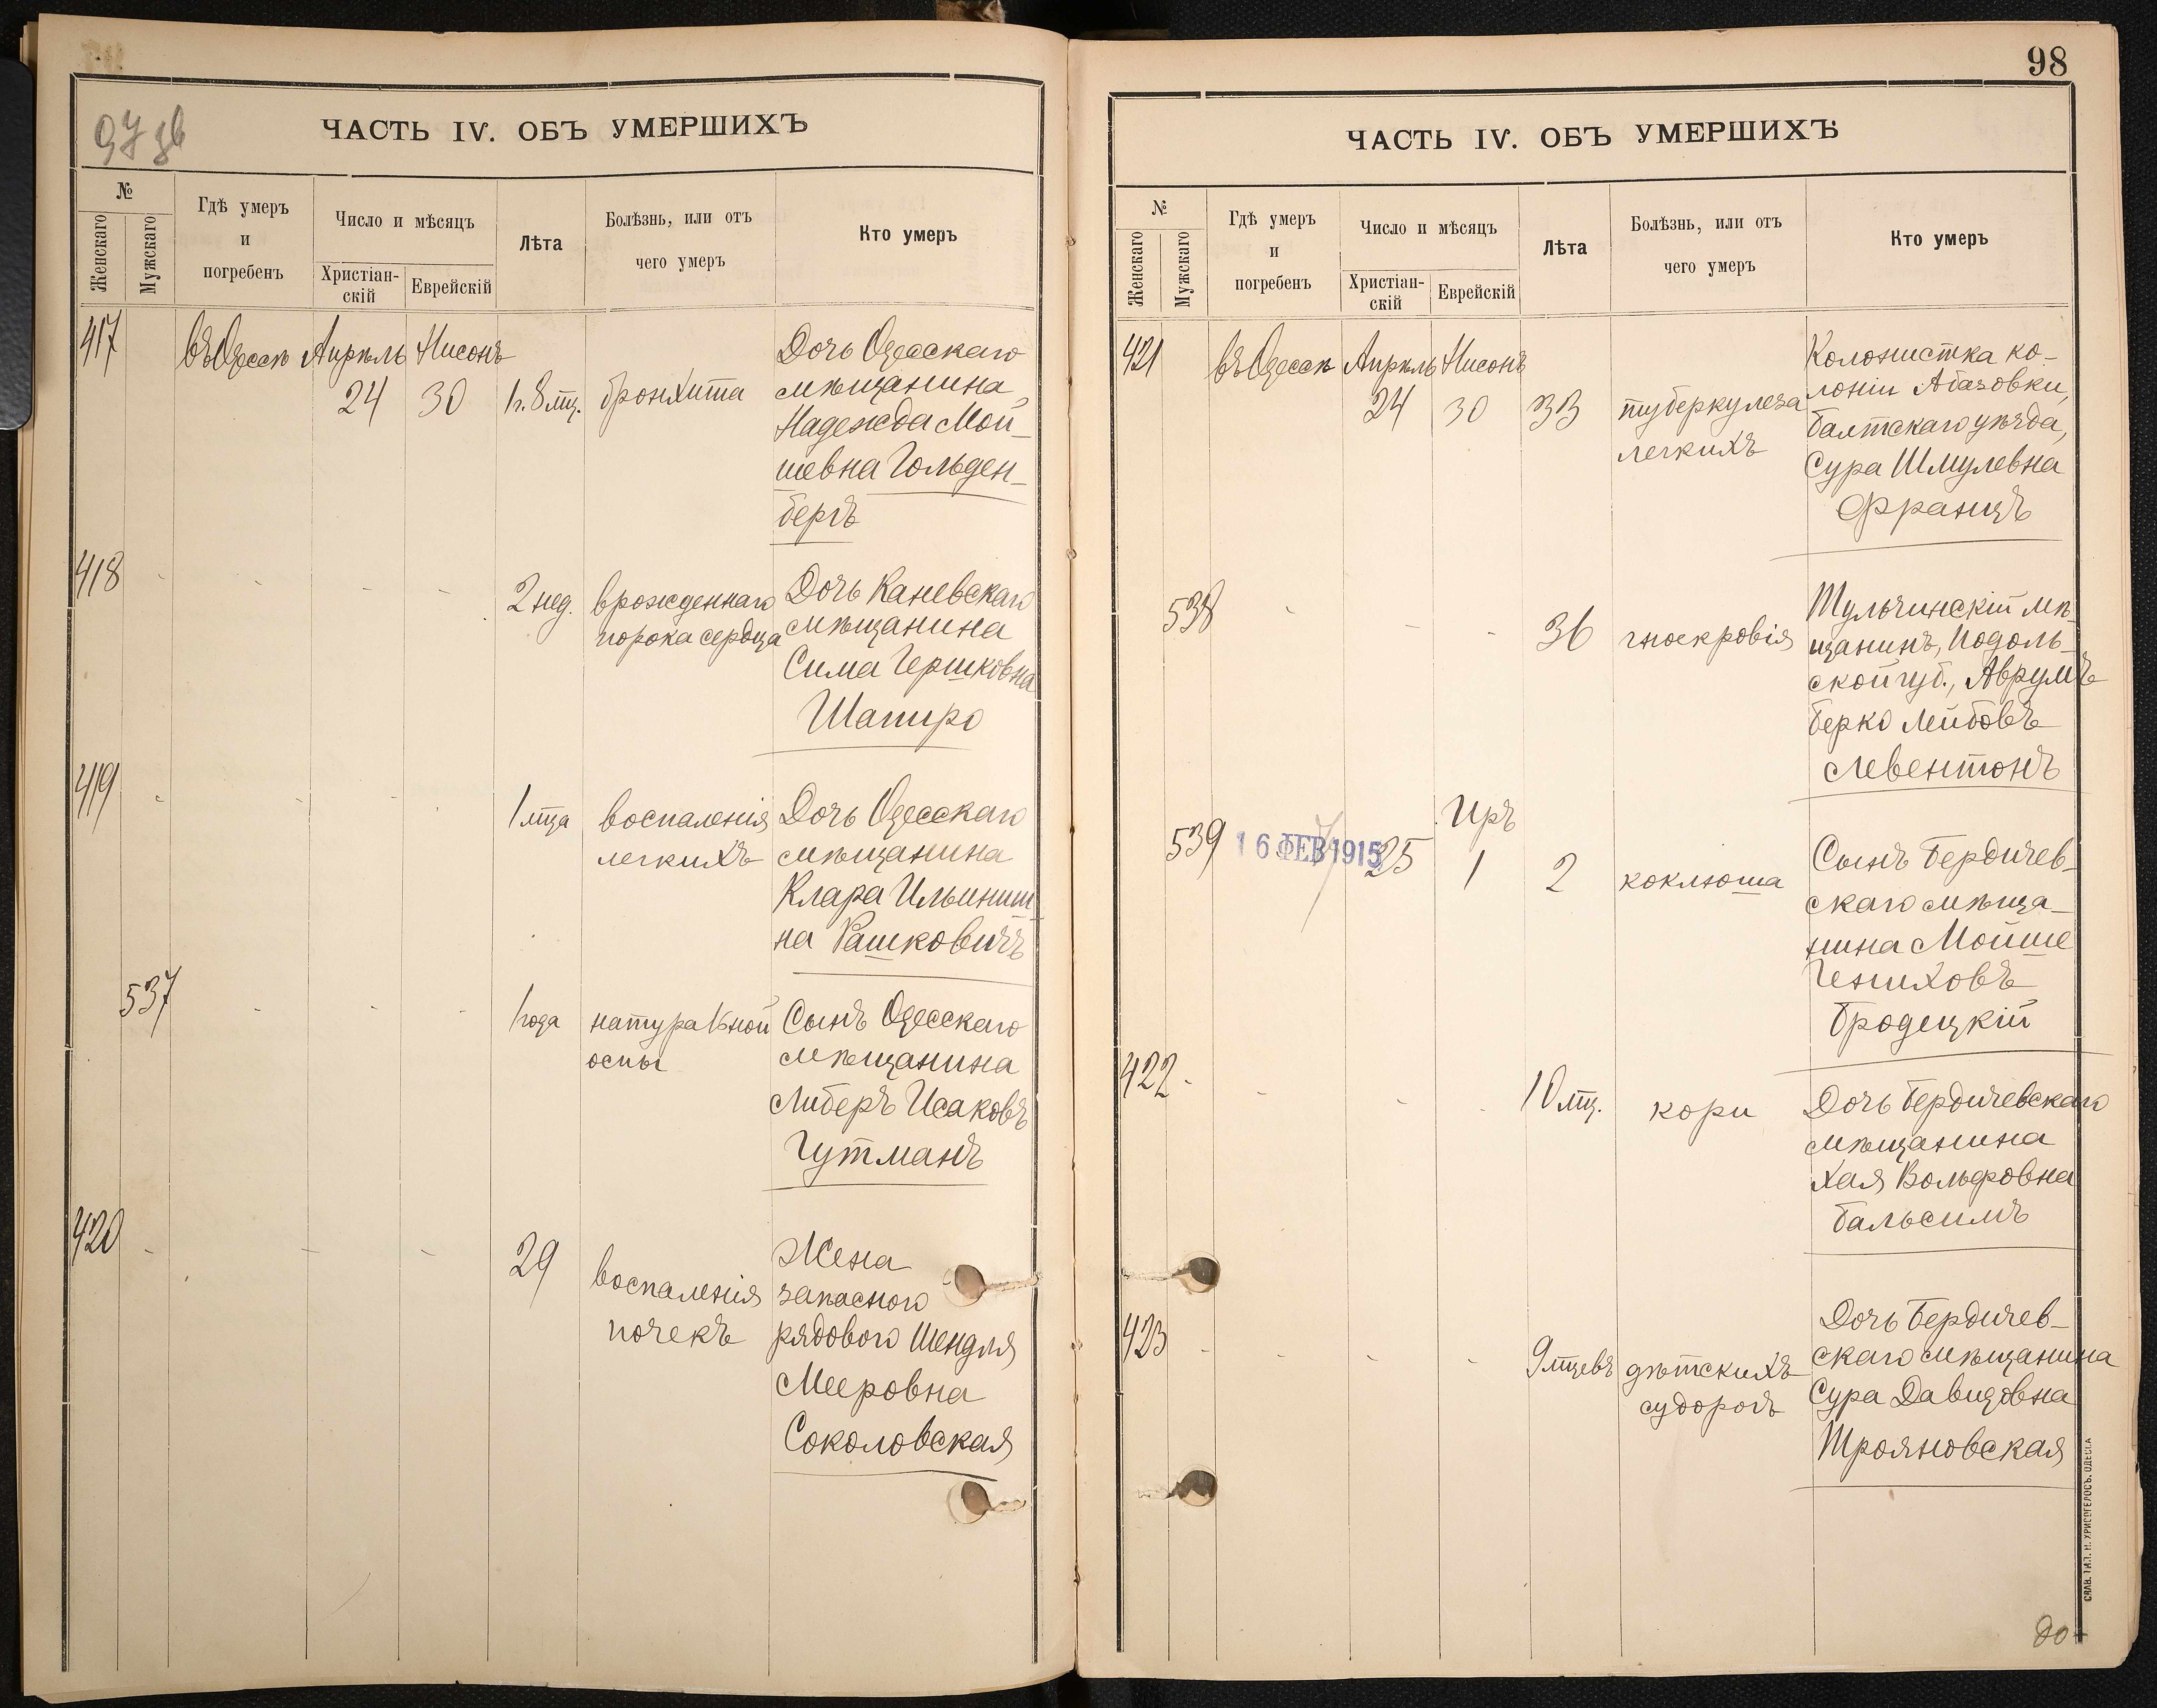 97 зв
ЧАСТЬ IV. ОБЪ УМЕРШИХЪ
№
Женскаго
Мужскаго
Гдѣ умеръ
и
погребенъ
Число и мѣсяцъ
Христіан-
скій
Еврейскій
Лѣта
Болѣзнь, или отъ
чего умеръ
Кто умеръ
417
въ Одессѣ
Апрѣль
24
Нисонъ
30
1г. 8 мц.
бронхита
Дочь Одесскаго
мѣщанина,
Надежда Мой-
шевна Гольден-
бергъ
418
2 нед.
врожденнаго
порока сердца
Дочь Каневскаго
мѣщанина
Сима Гершковна
Шапиро
419
1 мца
воспаленія
легкихъ
Дочь Одесскаго
мѣщанина
Клара Ильинич
на Рашковичъ
537
1 года
натуральной
оспы
Сынъ Одесскаго
мѣщанина
Либеръ Исаковъ
Гутманъ
420
29
воспаленія
почекъ
Жена
запасного
рядового Шендля
Мееровна
Соколовская
98
ЧАСТЬ IV. ОБЪ УМЕРШИХЪ
№
Женскаго
Мужскаго
Гдѣ умеръ
и
погребенъ
Число и мѣсяцъ
Христіан-
скій
Еврейскій
Лѣта
Болѣзнь, или отъ
чего умеръ
Кто умеръ
421
въ Одессѣ
Апрѣль
24
Нисонъ
30
33
туберкулеза
легкихъ
Колонистка ко-
лоніи Абазовки,
Балтскаго уѣзда,
Сура Шмулевна
Францъ
538
36
гноекровія
Тульчинскій мѣ-
щанинъ, Подоль-
ской губ., Аврумъ
Берко Лейбовъ
Левентонъ
539
16 ФЕВ 1915
25
Иръ
1
2
коклюша
Сынъ Бердичев-
скаго мѣща-
нина Мойше
Гениховъ
Бродецкій
422
10 мц.
кори
Дочь Бердичевскаго
мѣщанина
Хая Вольфовна
Бальсимъ
423
9 мцевъ
дѣтскихъ
судорогъ
Дочь Бердичев-
скаго мѣщанина
Сура Давидовна
Трояновская
СЛАВ. ТИП. Н. ХРИСОГЕЛОСЪ. ОДЕССА